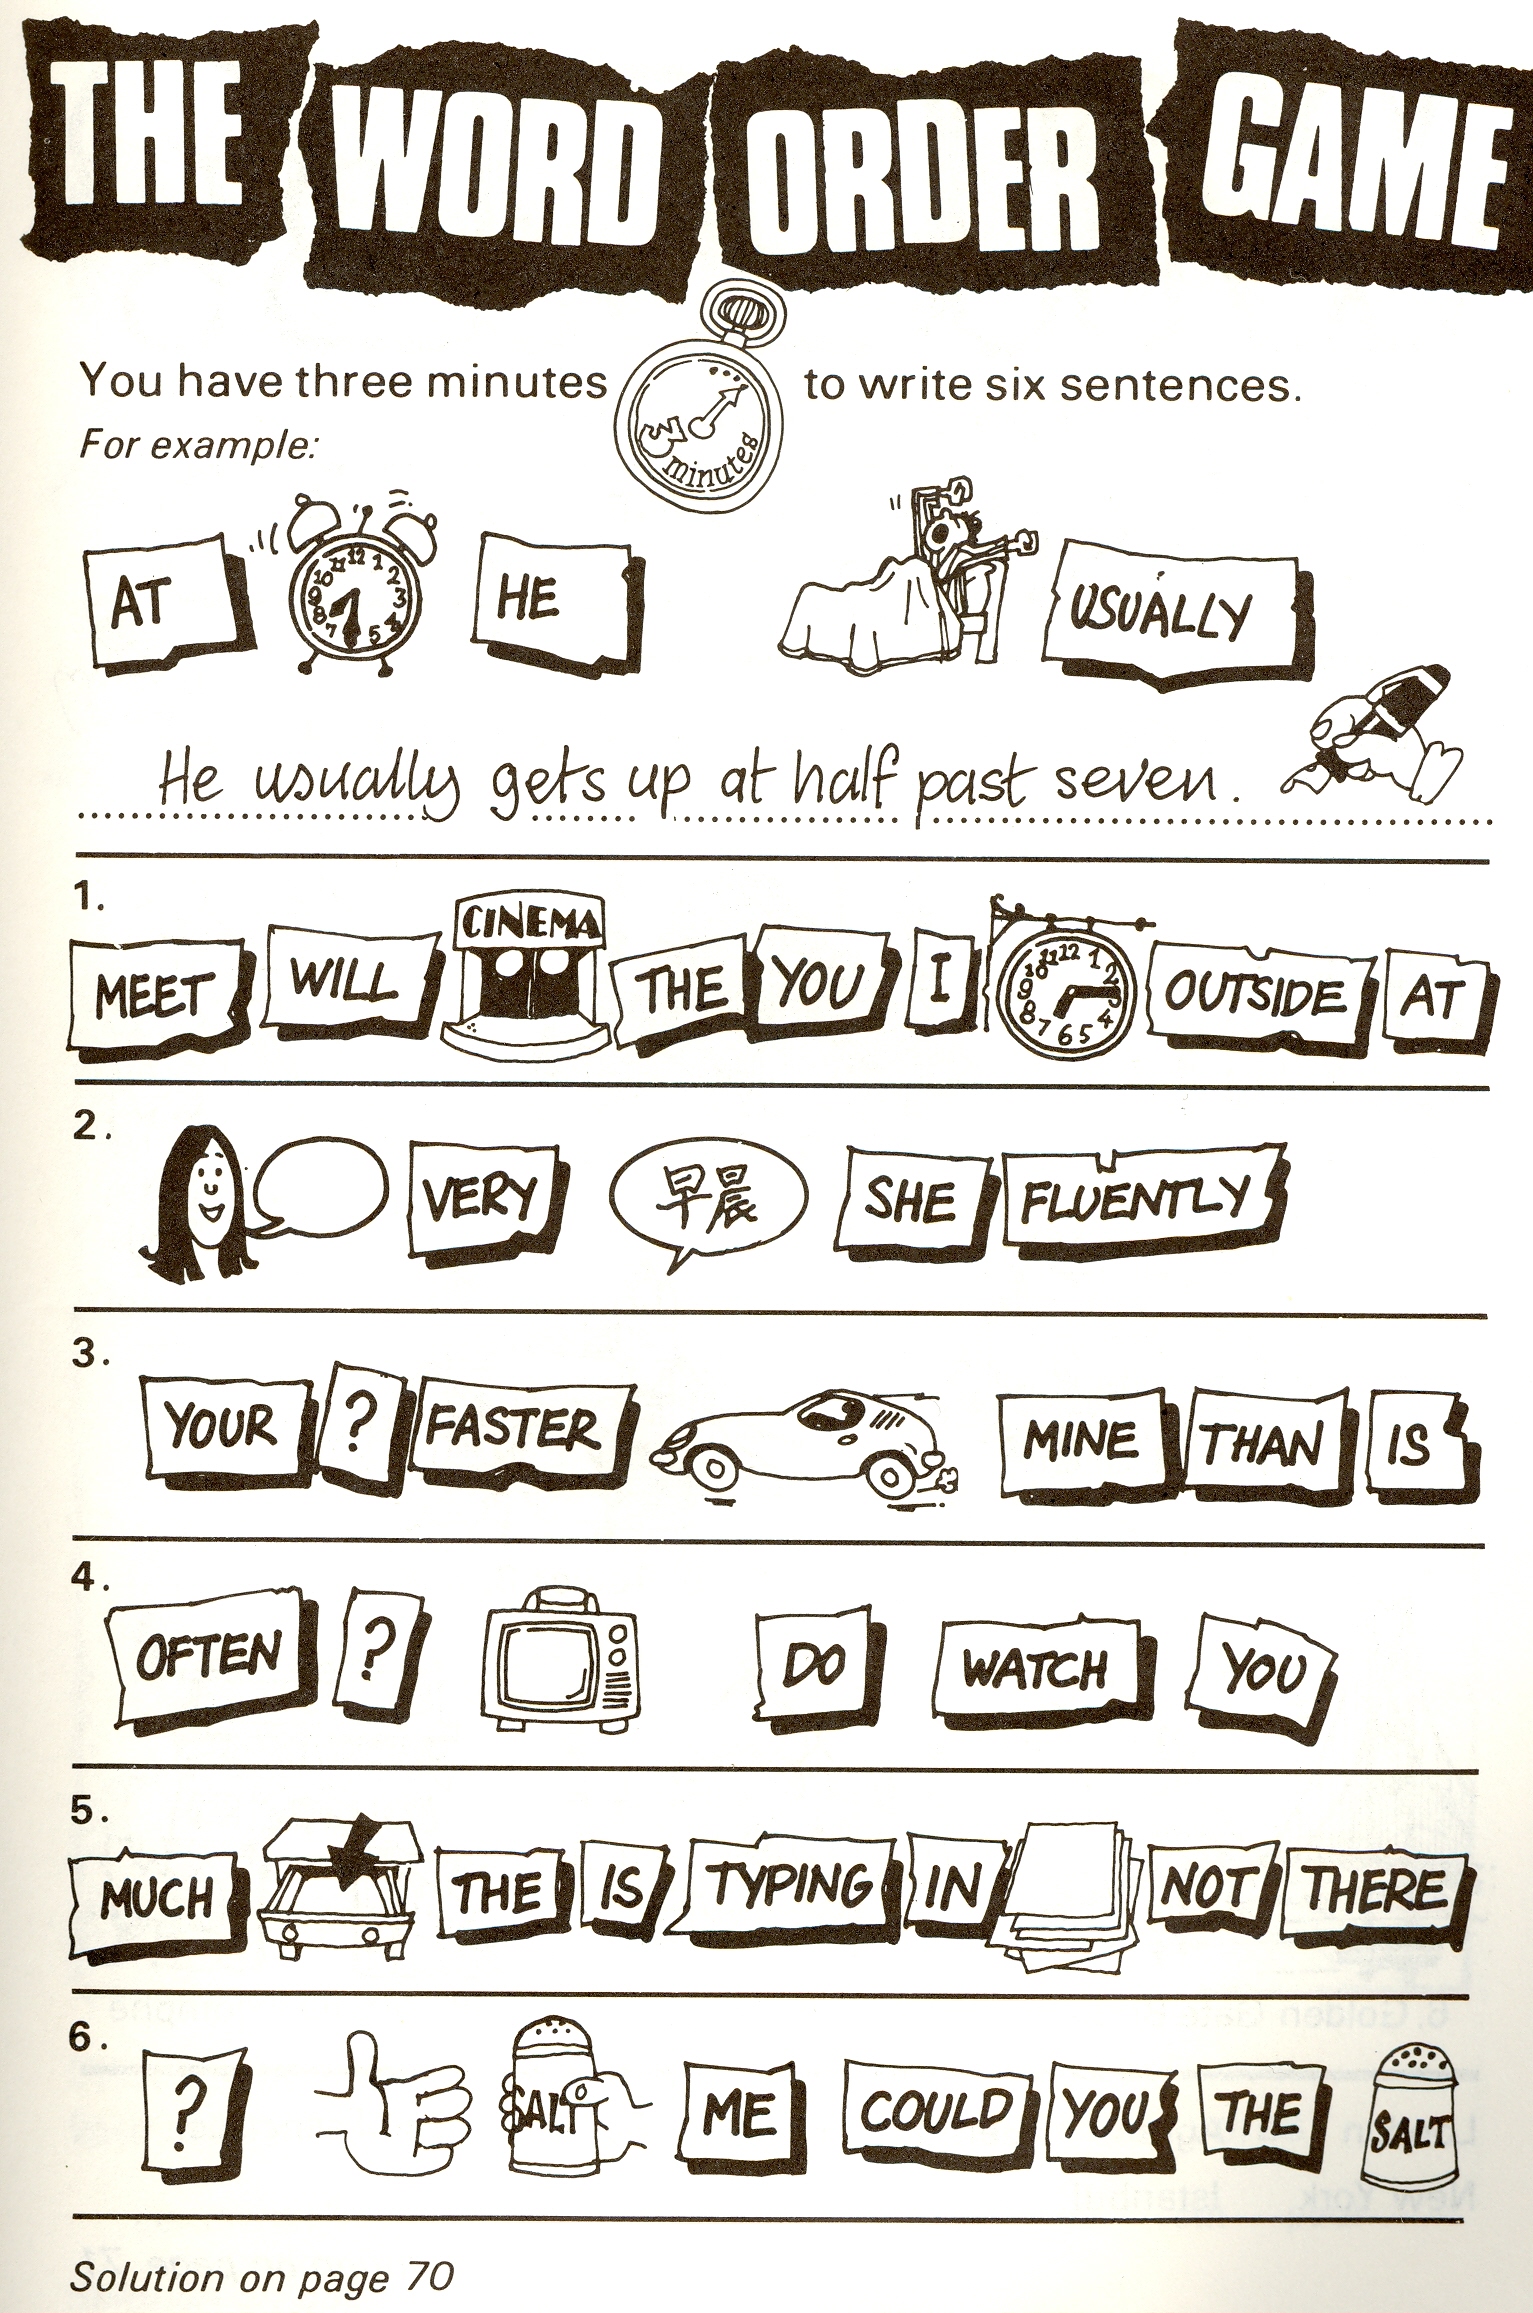 THE WORD ORDER GAME
You have three minutes to write six sentences.
3 minutes
For example:
AT 12 1 2 3 4 5 7 8 9 10 11 HE USUALLY
He usually gets up at half past seven.
1.
MEET WILL CINEMA THE YOU I 12 1 2 3 4 5 6 7 8 9 10 11 OUTSIDE AT
2.
VERY 早晨 SHE FLUENTLY
3.
YOUR ? FASTER MINE THAN IS
4.
OFTEN ? DO WATCH YOU
5.
MUCH THE IS TYPING IN NOT THERE
6.
? SALT ME COULD YOU THE SALT
Solution on page 70